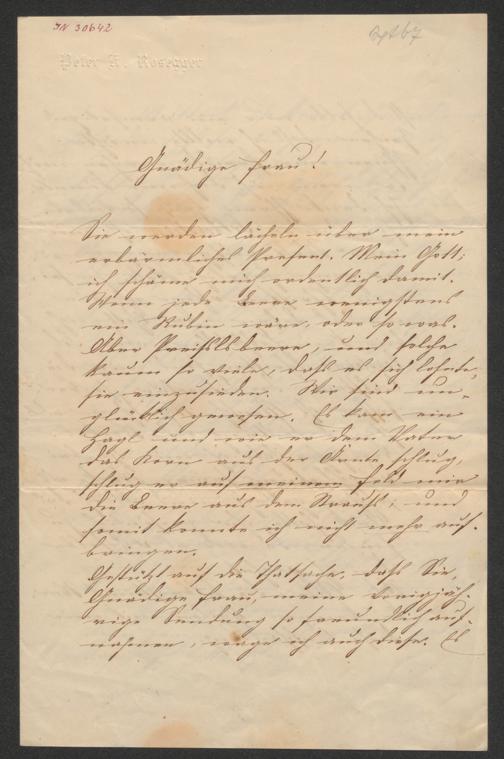 IN 30642
Peter K. Rosegger
Gnädige Frau!
Sie werden lächeln über mein
erbärmliches Present. Mein Gott;
ich schäme mich ordentlich damit.
Wenn jede Beere wenigstens
ein Rubin wäre, oder so was.
Aber Preißlsbeere, und solche
kaum so viele, daß es sich lohnte,
sie einzusieden. Wir sind un-
glücklich gewesen. Es kam ein
Hagl und wie er dem Vater
das Korn aus der Ähre schlug,
schlug er auf meinem Feld mir
die Beere aus dem Strauß; und
somit konnte ich nicht mehr auf-
bringen.
Gestützt auf die Thatsache, daß Sie,
Gnädige Frau, meine vorigjäh-
rige Sendung so freundlich auf-
nahmen, wage ich auch diese. Es